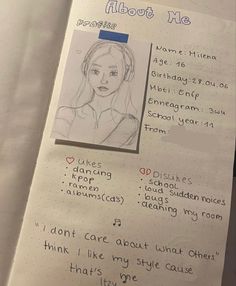 About Me
profile
Name: Milena
Age: 16
Birthday: 28.04.06
Mbti: Enfp
Enneagram: 3w4
School year: 11
From
Likes
• dancing
• kpop
• ramen
• albums(cds)
Dislikes
• school
• loud sudden noices
• bugs
• cleaning my room
"I dont care about what Others
think I like my style cause
that's me
Itzy